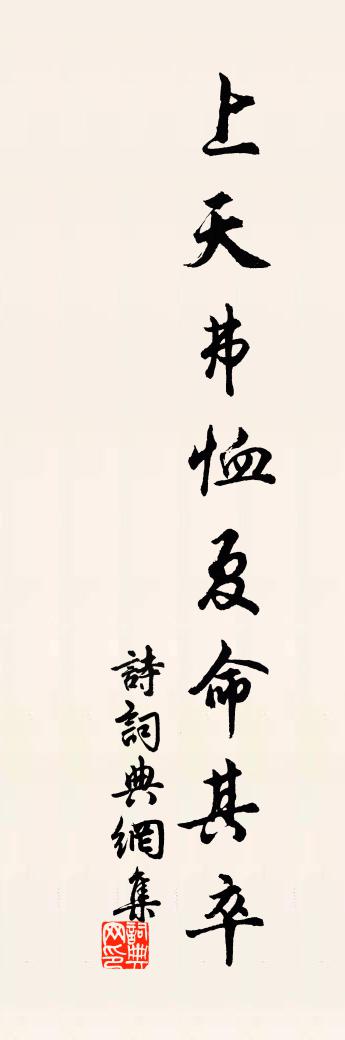 上天弗恤夏命其卒
詩詞典網集
詞典网印